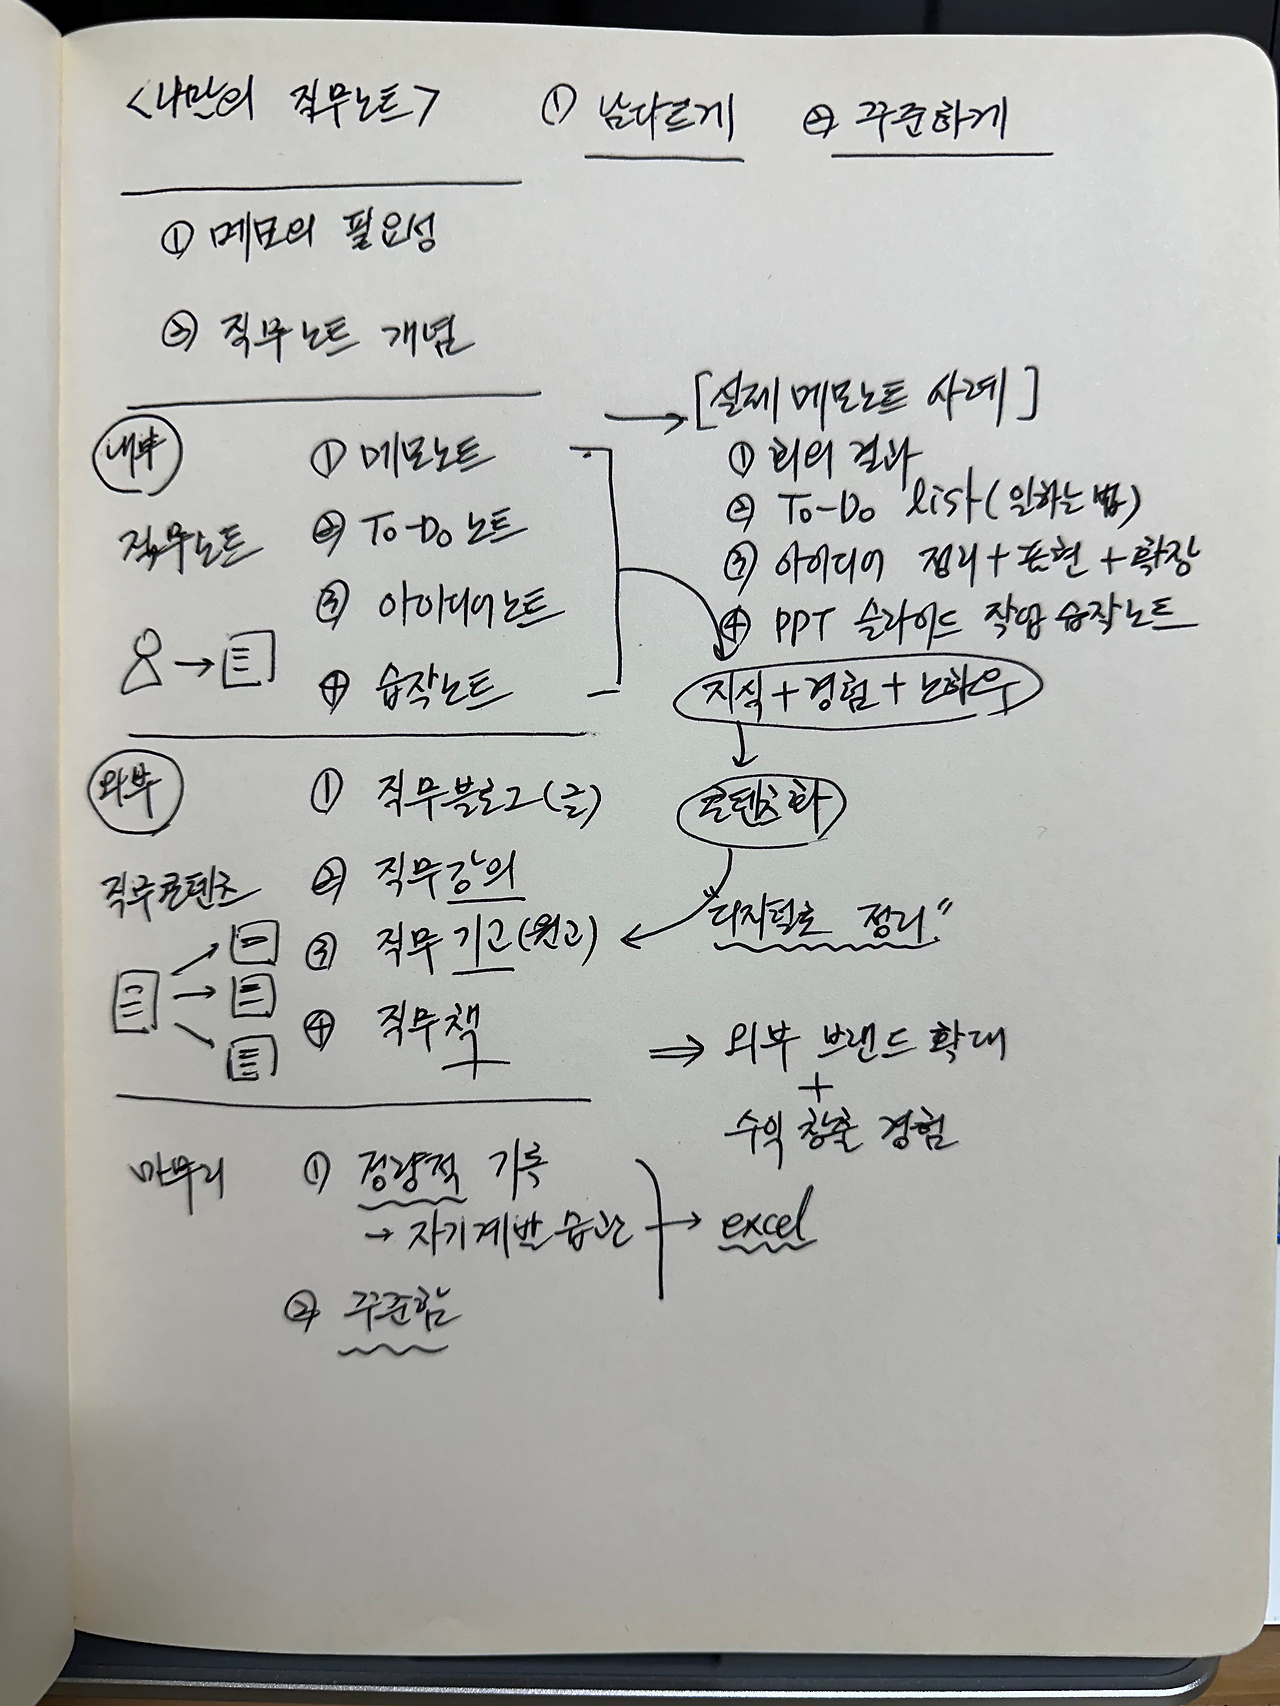 <나만의 직무노트> ① 남다르게 ② 꾸준하게
① 메모의 필요성
② 직무노트 개념
내부
직무노트
① 메모노트
② To-Do 노트
③ 아이디어노트
④ 습작노트
→ [실제 메모노트 사례]
① 회의 결과
② To-Do list (일하는 법)
③ 아이디어 정리 + 표현 + 확장
④ PPT 슬라이드 작업 습작노트
지식 + 경험 + 노하우
콘텐츠화
"디지털로 정리"
외부
직무콘텐츠
① 직무블로그(글)
② 직무강의
③ 직무기고(원고)
④ 직무책
⇒ 외부 브랜드 확대
+
수익 창출 경험
마무리
① 정량적 기록
→ 자기계발 습관
② 꾸준함
→ excel